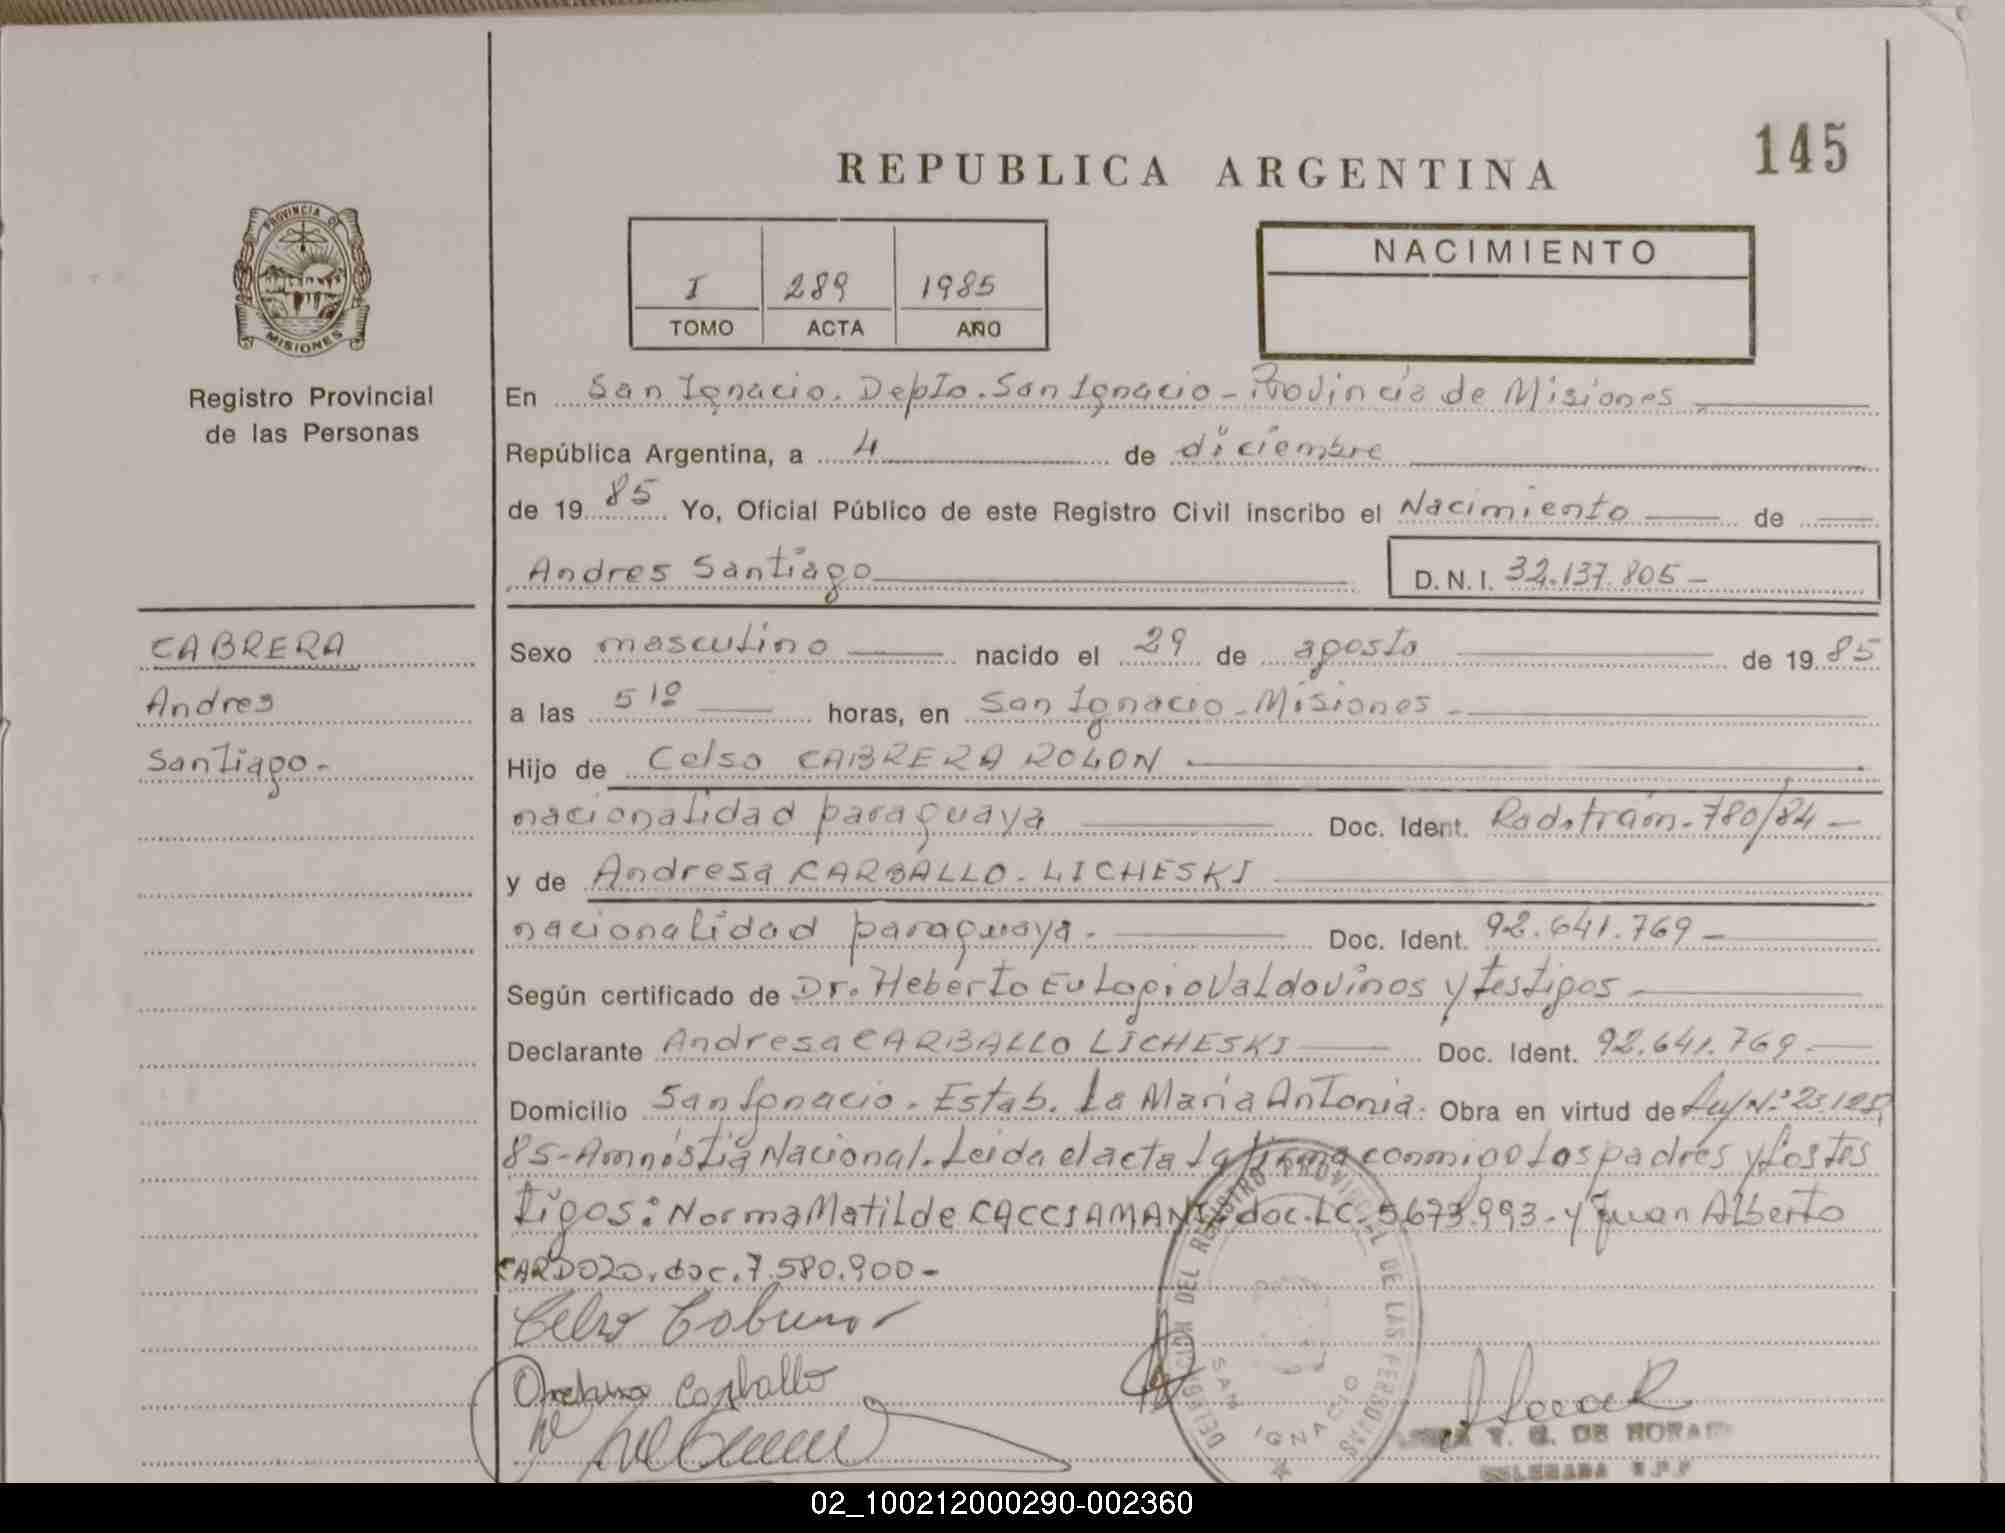 145
REPUBLICA ARGENTINA
PROVINCIA DE
MISIONES
Registro Provincial
de las Personas
I 289 1985
TOMO ACTA AÑO
NACIMIENTO
En San Ignacio. Depto. San Ignacio - Provincia de Misiones
República Argentina, a 4 de diciembre
de 19 85 Yo, Oficial Público de este Registro Civil inscribo el Nacimiento de
Andres Santiago D.N.I. 32.137.805 -
CABRERA
Andres
Santiago -
Sexo masculino nacido el 29 de agosto de 19 85
a las 5 10 horas, en San Ignacio - Misiones -
Hijo de Celso CABRERA ROLON
nacionalidad paraguaya Doc. Ident. Rad. tram. 780/84 -
y de Andresa CARBALLO - LICHESKI
nacionalidad paraguaya - Doc. Ident. 92.641.769 -
Según certificado de Dr. Heberto Eulogio Valdovinos y testigos -
Declarante Andresa CARBALLO LICHESKI Doc. Ident. 92.641.769 -
Domicilio San Ignacio - Estab. La Maria Antonia. Obra en virtud de Ley Nº
85 - Amnistia Nacional. Leida el acta la firma conmigo los padres y los tes
tigos: Norma Matilde CACCIAMANI, doc. LC. 5.673.993 - y Juan Alberto
CARDOZO, doc. 7.580.900 -
Celso Cabrera
Carballo
DELEGACION DEL REGISTRO PROVINCIAL DE LAS PERSONAS
SAN IGNACIO
DE MORA
02_100212000290-002360